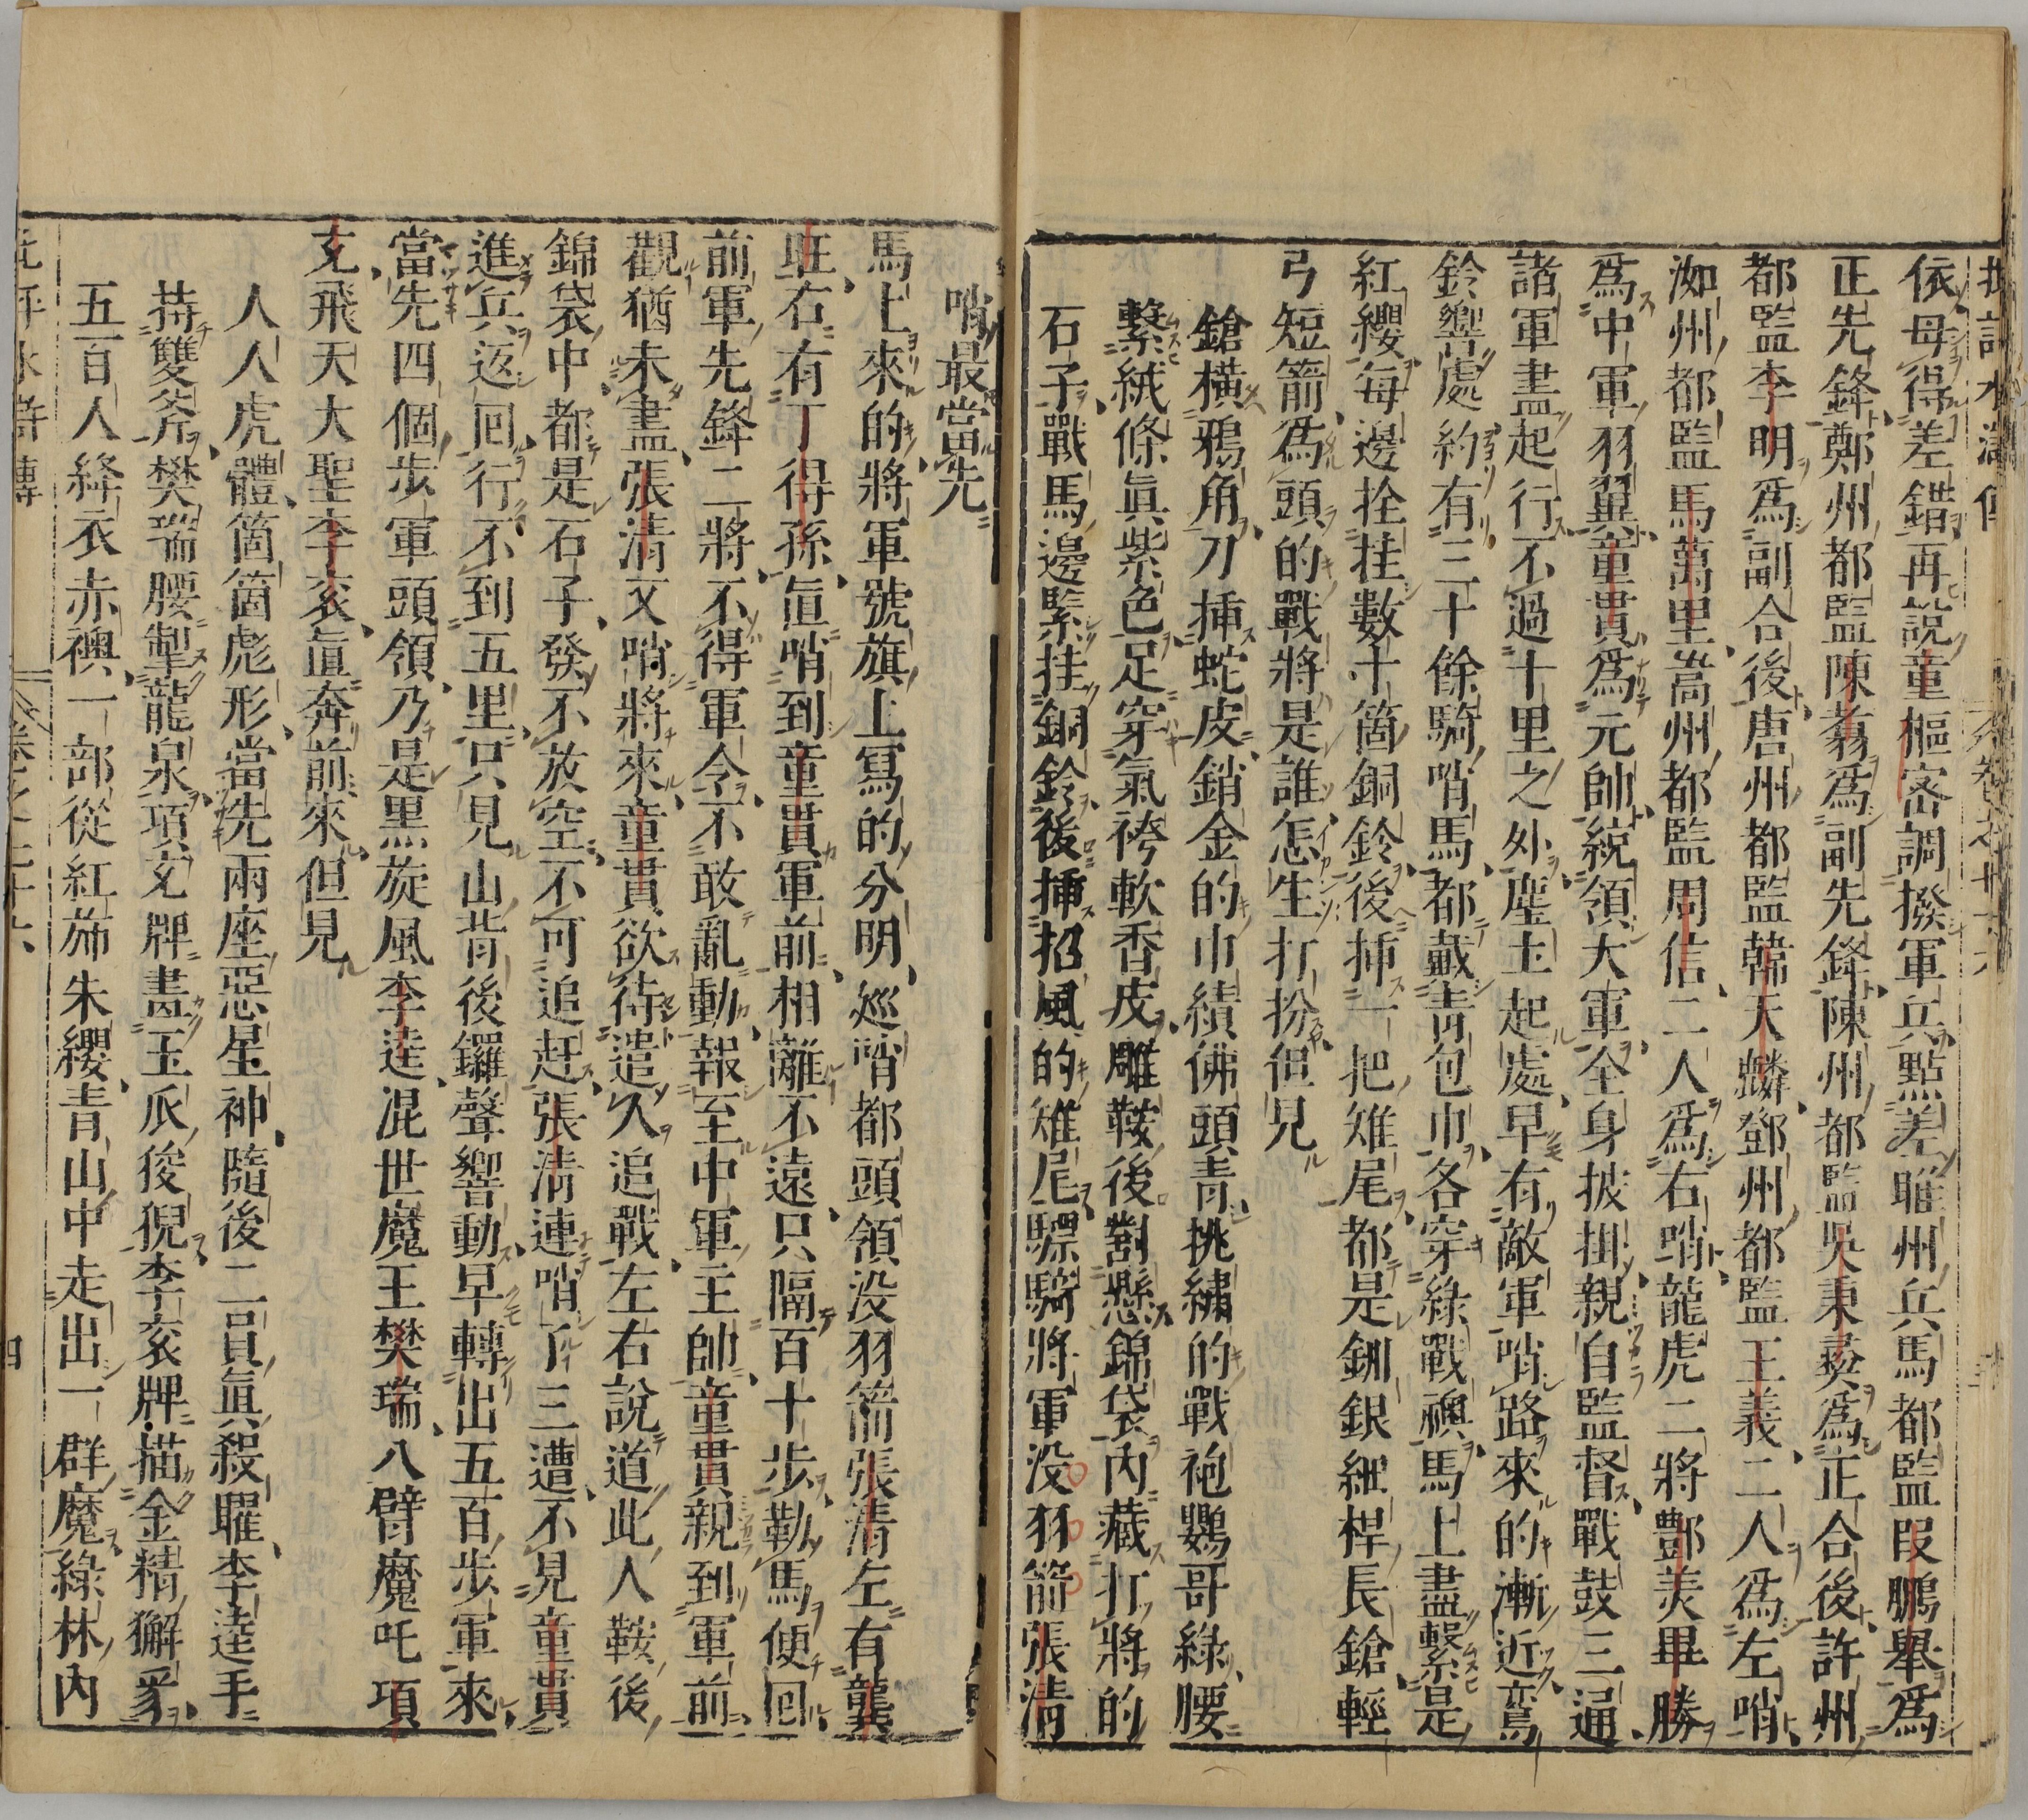 依毋得差錯再說童樞密調撥軍兵點差睢州兵馬都監段鵬舉爲
正先鋒鄭州都監陳翥爲副先鋒陳州都監吳秉彝爲正合後許州
都監李明爲副合後唐州都監韓天麟鄧州都監王義二人爲左哨
洳州都監馬萬里嵩州都監周信二人爲右哨龍虎二將酆美畢勝
爲中軍羽翼童貫爲元帥統領大軍全身披掛親自監督戰鼓三通
諸軍盡起行不過十里之外塵土起處早有敵軍哨路來的漸近鸞
鈴響處約有三十餘騎哨馬都戴青包巾各穿綠戰襖馬上盡繫是
紅纓每邊拴挂數十箇銅鈴後揷一把雉尾都是釧銀細桿長鎗輕
弓短箭爲頭的戰將是誰怎生打扮但見
鎗橫鴉角刀揷蛇皮銷金的巾幘佛頭青挑繡的戰袍鸚哥綠腰
繫絨絛眞紫色足穿氣袴軟香皮雕鞍後對懸錦袋內藏打將的
石子戰馬邊緊挂銅鈴後揷招風的雉尾驃騎將軍没羽箭張淸
哨最當先
馬上來的將軍號旗上寫的分明巡哨都頭領没羽箭張淸左有龔
旺右有丁得孫直哨到童貫軍前相離不遠只隔百十步勒馬便囘
前軍先鋒二將不得軍令不敢亂動報至中軍主帥童貫親到軍前
觀猶未盡張淸又哨將來童貫欲待遣人追戰左右說道此人鞍後
錦袋中都是石子發不放空不可追赶張淸連哨了三遭不見童貫
進兵返囘行不到五里只見山背後鑼聲響動早轉出五百步軍來
當先四個步軍頭領乃是黑旋風李逵混世魔王樊瑞八臂魔吒項
充飛天大聖李衮直奔前來但見
人人虎體箇箇彪形當先兩座惡星神隨後二員眞殺曜李逵手
持雙斧樊瑞腰掣龍泉項充牌畫玉爪狻猊李衮牌描金精獬豸
五百人絳衣赤襖一部從紅旆朱纓青山中走出一群魔綠林內